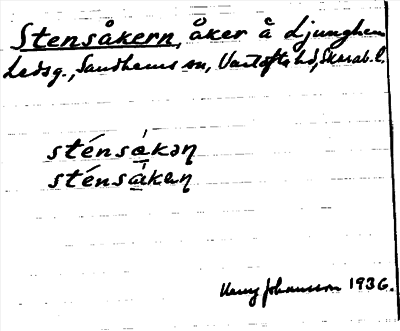 Stensåkern, åker å Ljunghem
Ledsg., Sandhems sn, Vartofta hd, Skarab. l.
sténsǻkən
sténsá̱kən
Johansson 1936.